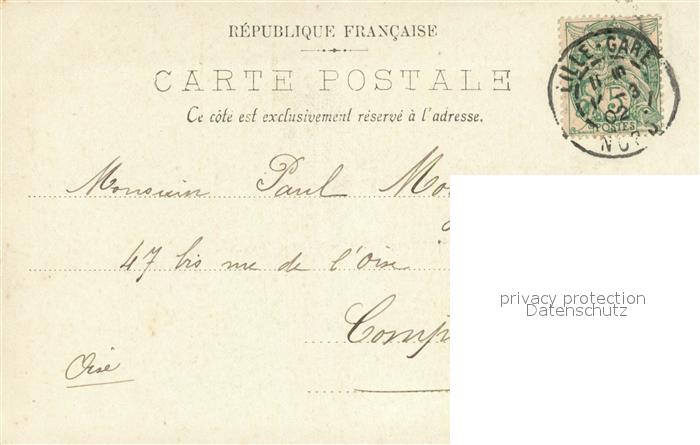 RÉPUBLIQUE FRANÇAISE
CARTE POSTALE
Ce côté est exclusivement réservé à l'adresse.
LILLE-GARE
02
5
POSTES
NORD
Monsieur Paul Mo
47 bis rue de l'Oise
Comp
Oise
privacy protection
Datenschutz